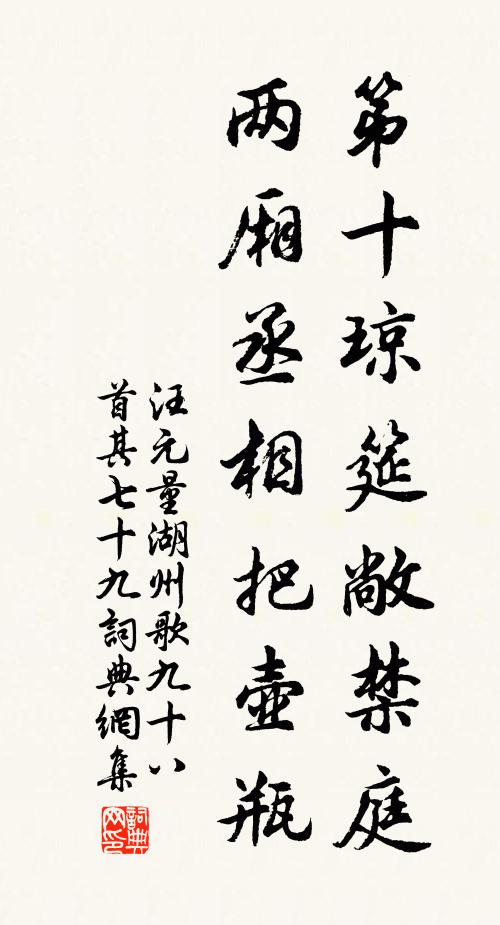 第十琼筵敞禁庭
两厢丞相把壶瓶
汪元量湖州歌九十八
首其七十九詞典網集
詞典网印